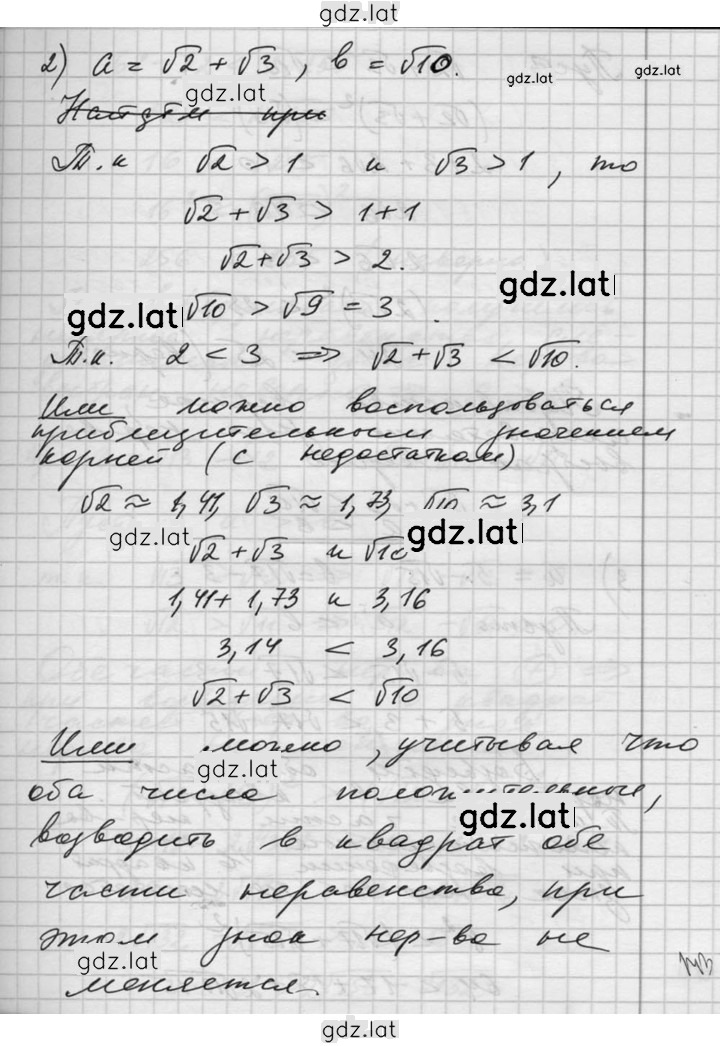 gdz.lat
2) a = √2 + √3 , в = √10.
gdz.lat gdz.lat
gdz.lat
Найдём при
Т.к √2 > 1 и √3 > 1 , то
√2 + √3 > 1+1
√2+√3 > 2.
gdz.lat
√10 > √9 = 3 .
gdz.lat
Т.к. 2 < 3 => √2+√3 < √10.
Или можно воспользоваться
приблизительным значением
корней (с недостатком)
√2 ≈ 1,41, √3 ≈ 1,73, √10 ≈ 3,1
gdz.lat gdz.lat
√2+√3 и √10
1,41+ 1,73 и 3,16
3,14 < 3,16
√2+√3 < √10
Или можно , учитывая что
gdz.lat
оба числа положительные,
gdz.lat
возводить в квадрат обе
части неравенства, при
этом знак нер-ва не
gdz.lat
меняется.
gdz.lat